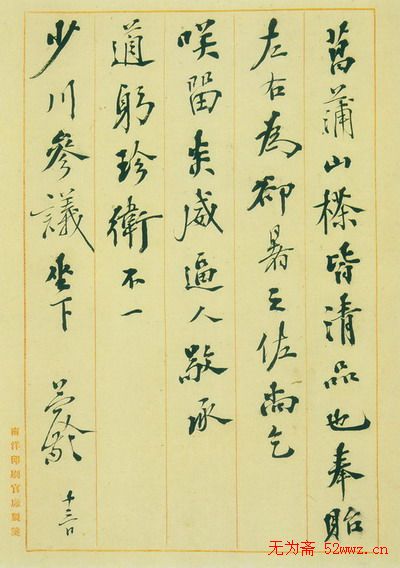 菖蒲山皆清品也奉貽
左右為卻暑之佐尚乞
咲留炎威逼人敬承
道躬珍衛不一
少川參議坐下 十三日
南洋印刷官廠製箋
无为斋 52wwz.cn